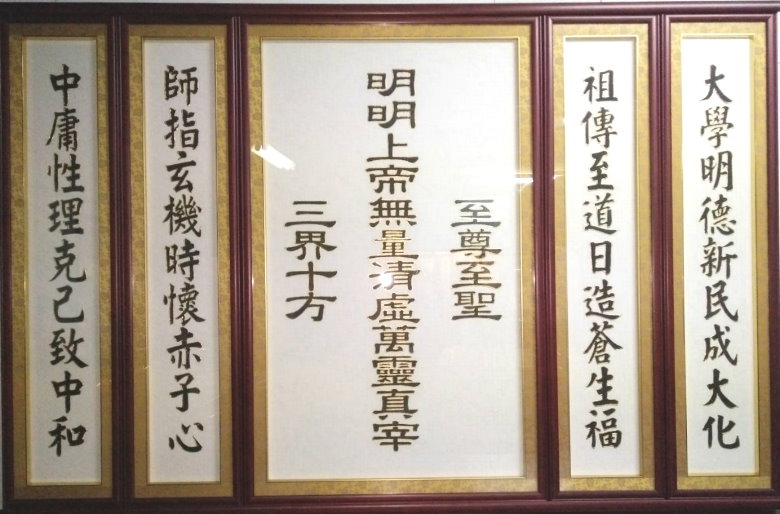 大學明德新民成大化
祖傳至道日造蒼生福
至尊至聖
明明上帝無量清虛萬靈真宰
三界十方
師指玄機時懷赤子心
中庸性理克己致中和